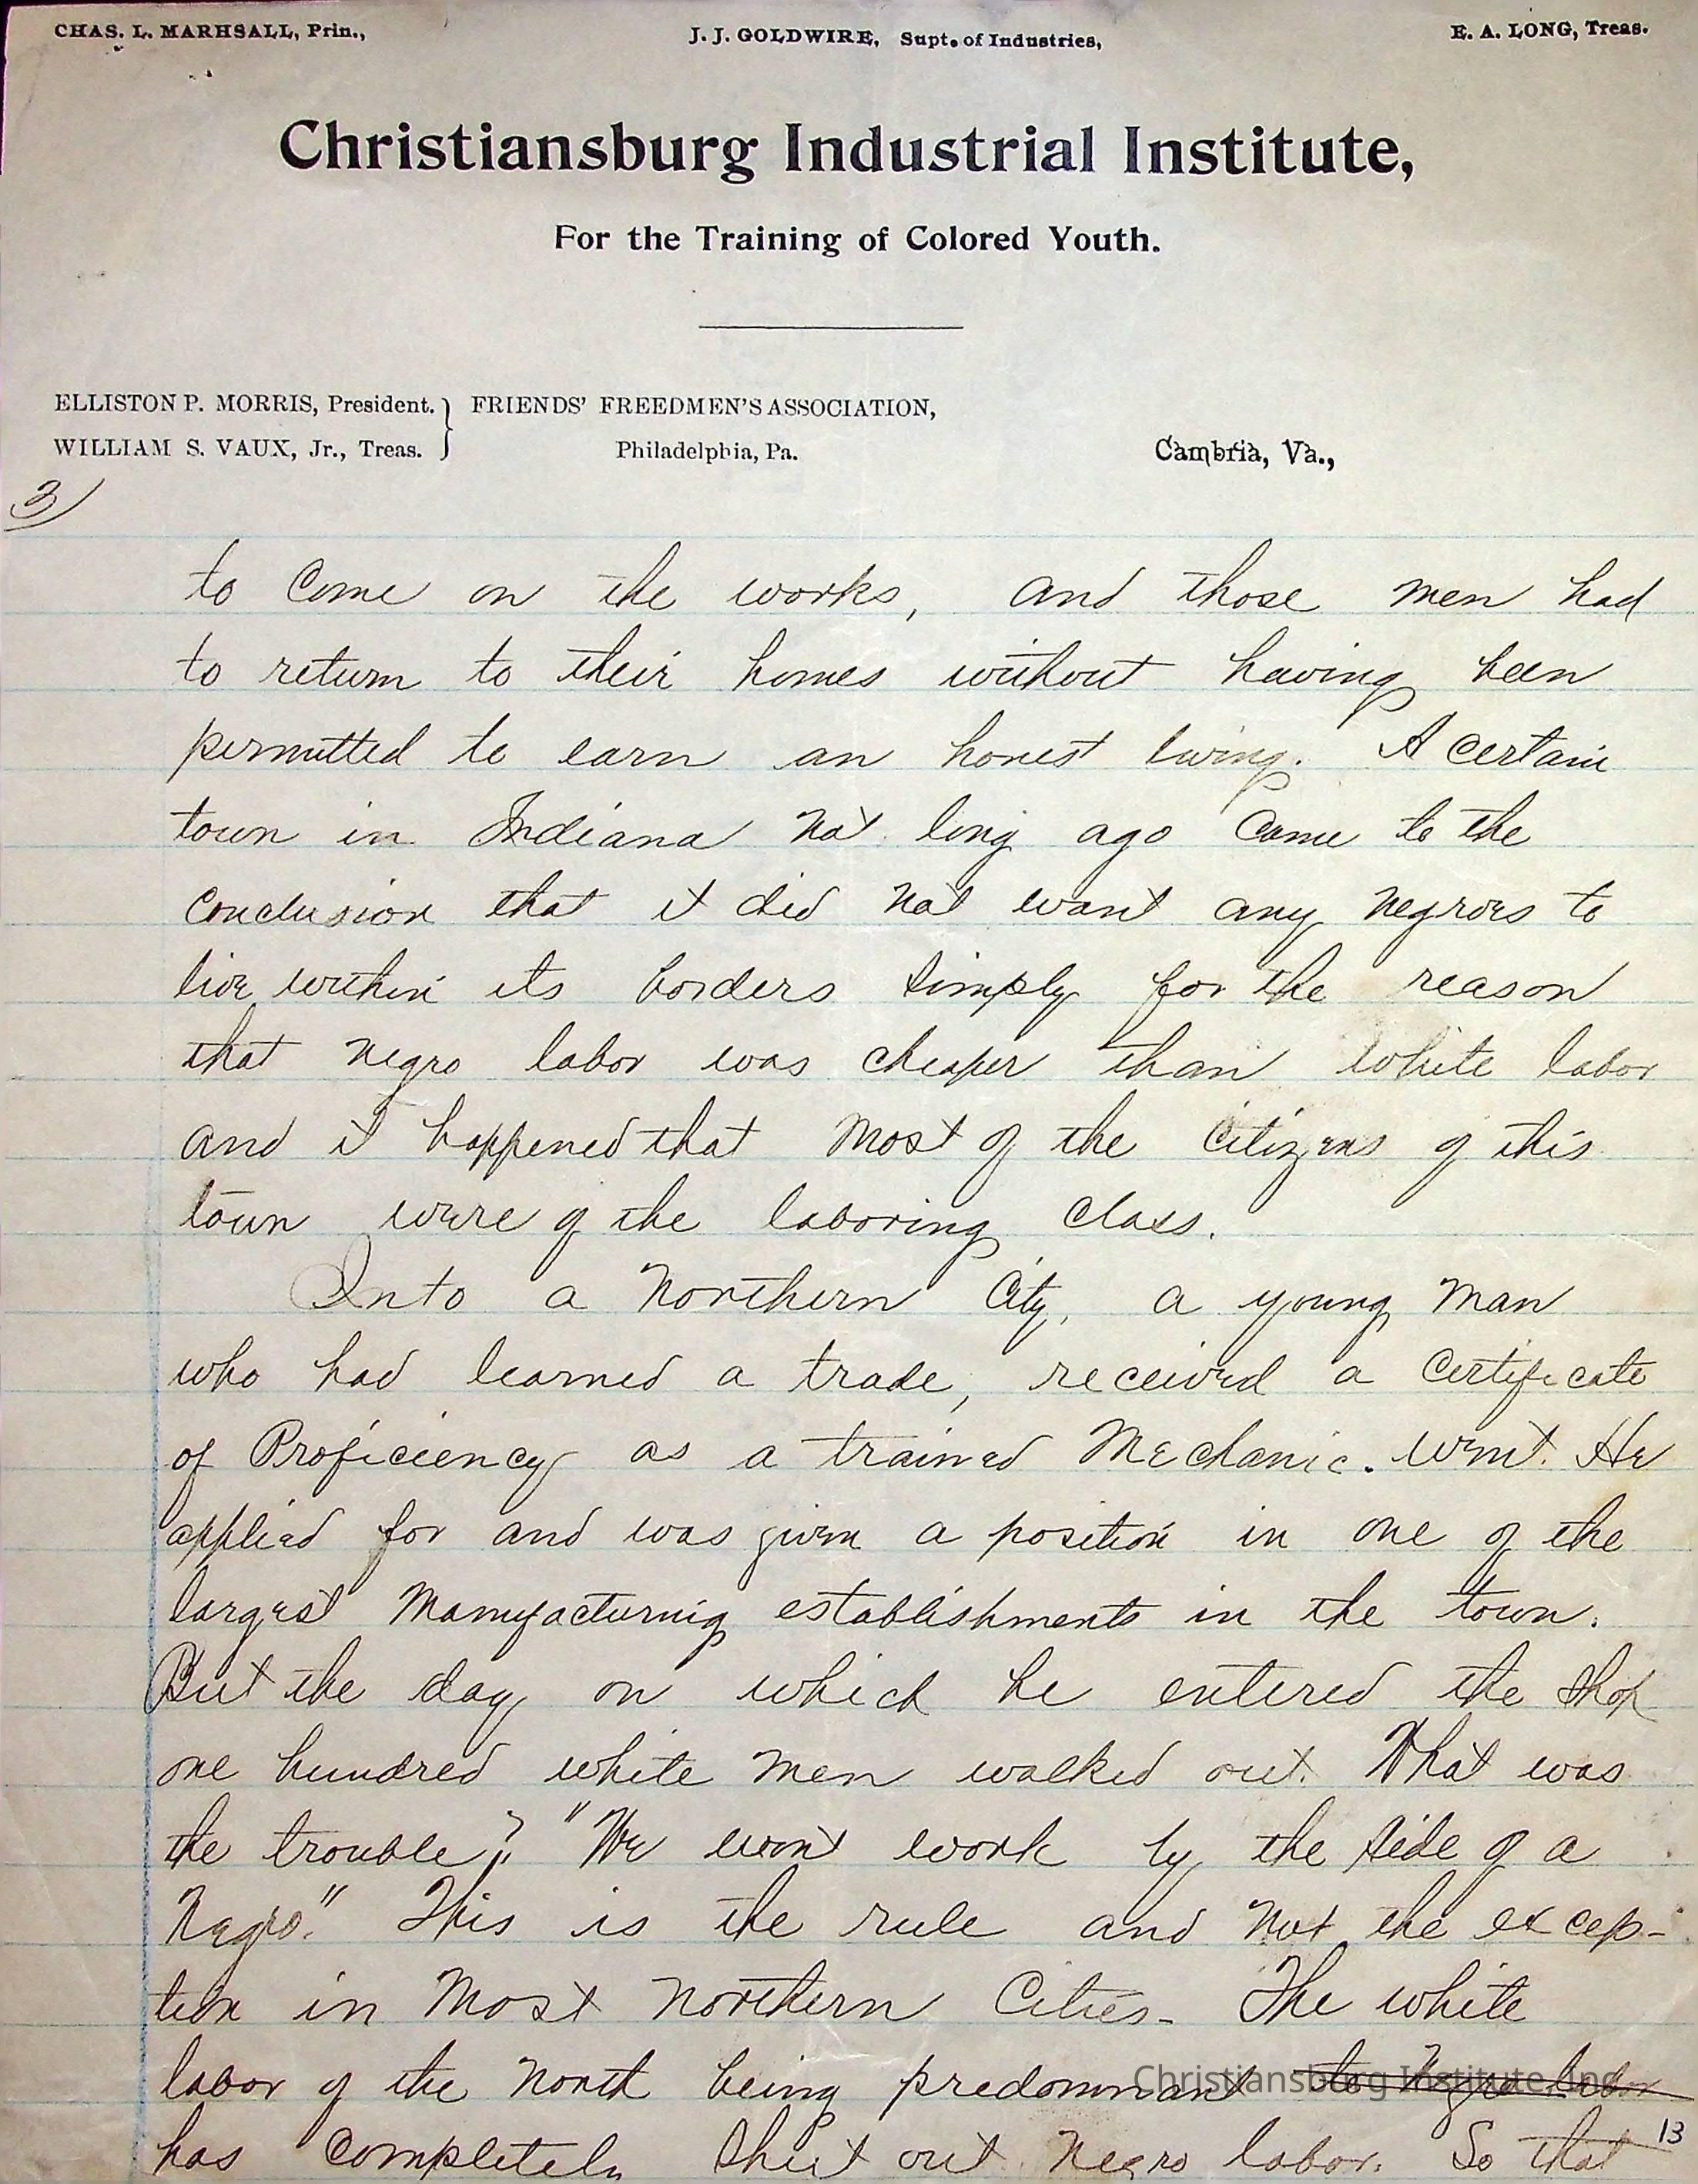 CHAS. L. MARHSALL, Prin., J. J. GOLDWIRE, Supt. of Industries, E. A. LONG, Treas.
Christiansburg Industrial Institute,
For the Training of Colored Youth.
ELLISTON P. MORRIS, President. } FRIENDS' FREEDMEN'S ASSOCIATION,
WILLIAM S. VAUX, Jr., Treas. Philadelphia, Pa. Cambria, Va.,
3)
to Come on the works, and those men had
to return to their homes without having been
permitted to earn an honest living. A certain
town in Indiana not long ago Came to the
Conclusion that it did not want any negroes to
live within its borders simply for the reason
that negro labor was cheaper than white labor
and it happened that most of the Citizens of this
town were of the laboring Class.
Into a Northern City, a young man
who had learned a trade, received a Certificate
of Proficiency as a trained Mechanic. went. He
applied for and was given a position in one of the
largest Manufacturing establishments in the town.
But the day on which he entered the shop
one hundred white men walked out. What was
the trouble? "We wont work by the side of a
Negro." This is the rule and not the excep-
tion in most northern Cities. The white
labor of the North being predominant the Negro labor
has Completely shut out Negro labor. So that
Christiansburg Institute, Inc.
13